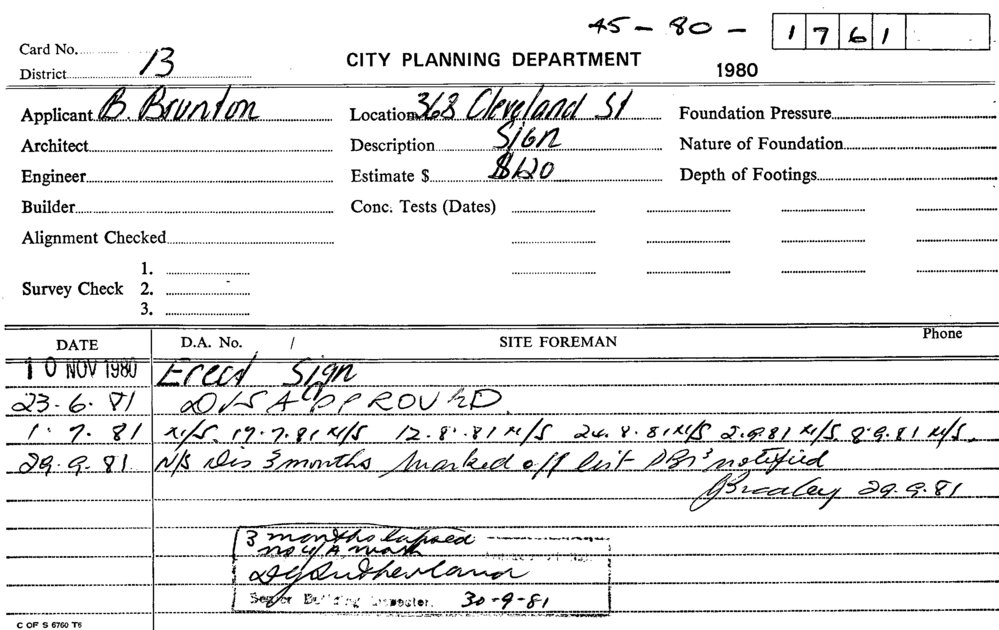 45-80- 1761
Card No.
District 13
CITY PLANNING DEPARTMENT
1980
Applicant B. Brunton
Location 368 Cleveland St
Foundation Pressure
Architect
Description Sign
Nature of Foundation
Engineer
Estimate $ $120
Depth of Footings
Builder
Conc. Tests (Dates)
Alignment Checked
Survey Check
1.
2.
3.
DATE D.A. No. / SITE FOREMAN Phone
10 NOV 1980 Erect Sign
23.6.81 DISAPPROVED.
1.7.81 N/S. 17.7.81 N/S 12.8.81 N/S 24.8.81 N/S 2.9.81 N/S. 8.9.81 N/S.
29.9.81 N/S Dis 3 months marked off list notified
29.9.81
3 months lapsed
no work
Sutherland
Senior Building Inspector. 30-9-81
C OF S 6760 T6